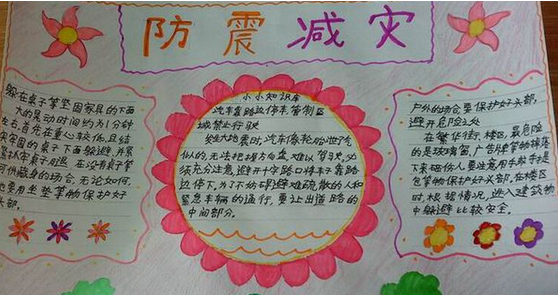 防震减灾
躲在桌子等坚固家具的下面
大的晃动时间约为1分钟
左右,首先在重心较低且结
实牢固的桌子下面躲避,并紧
紧抓牢桌子腿。在没有桌子等
可供藏身的场合,无论如何,
也要用坐垫等物保护好
头部。
小小知识库
汽车靠路边停车管制区
域禁止行驶
发生大地震时,汽车像轮胎泄了气
似的,无法把握方向盘,难以驾驶,必
须充分注意,避开十字路口将车子靠路
边停下,为了不妨碍避难疏散的人和
紧急车辆的通行,要让出道路的
中间部分。
户外的场合要保护好头部,
避开危险之处
在繁华街、楼区,最危险
的是玻璃窗、广告牌等物掉落
下来砸伤人要注意用手或手提
包等物保护好头部,在楼区
时,根据情况,进入建筑物
中躲避比较安全。